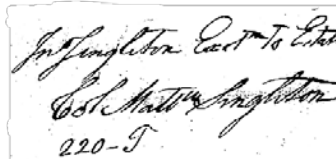 Jno Singleton Exor To Esta
Col Matthw Singleton
220-T